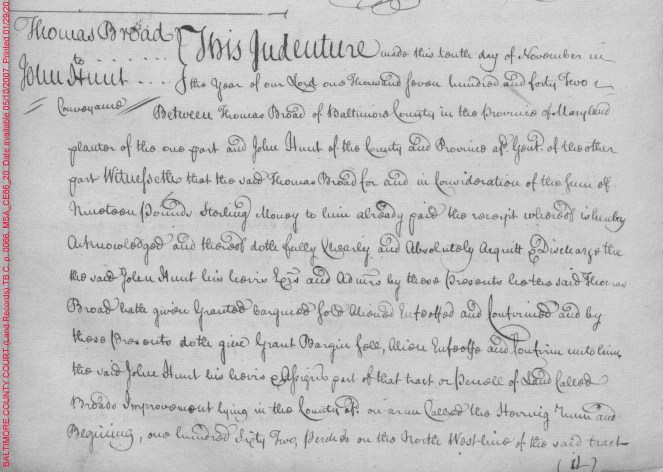 BALTIMORE COUNTY COURT (Land Records) TB C, p. 0066, MSA_CE66_20. Date available 05/10/2007. Printed 01/29/20
Thomas Broad
to
John Hunt
Conveyance
This Indenture made this tenth day of November in
the year of our Lord one thousand seven hundred and forty Two
Between Thomas Broad of Baltimore County in the Province of Maryland
planter of the one part and John Hunt of the County and Province afd. Gent. of the other
part Witnesseth that the said Thomas Broad for and in Consideration of the sum of
Nineteen Pounds Sterling Money to him already paid the receipt whereof is hereby
Acknowledged and thereof doth fully Clearly and Absolutely Acquitt & Discharge the
the said John Hunt his heirs Exrs and Admrs by these Presents he the said Thomas
Broad hath given Granted bargined sold Aliened Enfeoffed and Confirmed and by
these Presents doth give Grant Bargin sell, Alien Enfeoffe and Confirm unto him
the said John Hunt his heirs & Assigns part of that tract or Percell of Land Called
Broads Improvement lying in the County afd. on a run Called the Herring runn and
Begining, one hundred Sixty Two, perches on the North West line of the said tract
(it)